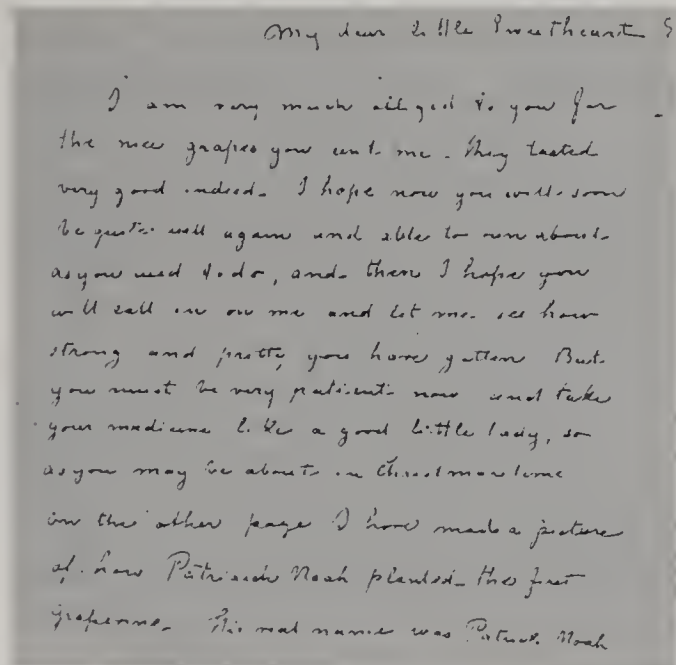 My dear little Sweetheart S
I am very much obliged to you for
the nice grapes you sent me. They tasted
very good indeed. I hope now you will soon
be quite well again and able to run about
as you used to do, and then I hope you
will call in on me and let me see how
strong and pretty you have gotten But
you must be very patient now and take
your medicine like a good little lady, so
as you may be about in Christmas time
on the other page I have made a picture
of how Patriarch Noah planted the first
grapevine. His real name was Patrick Noah